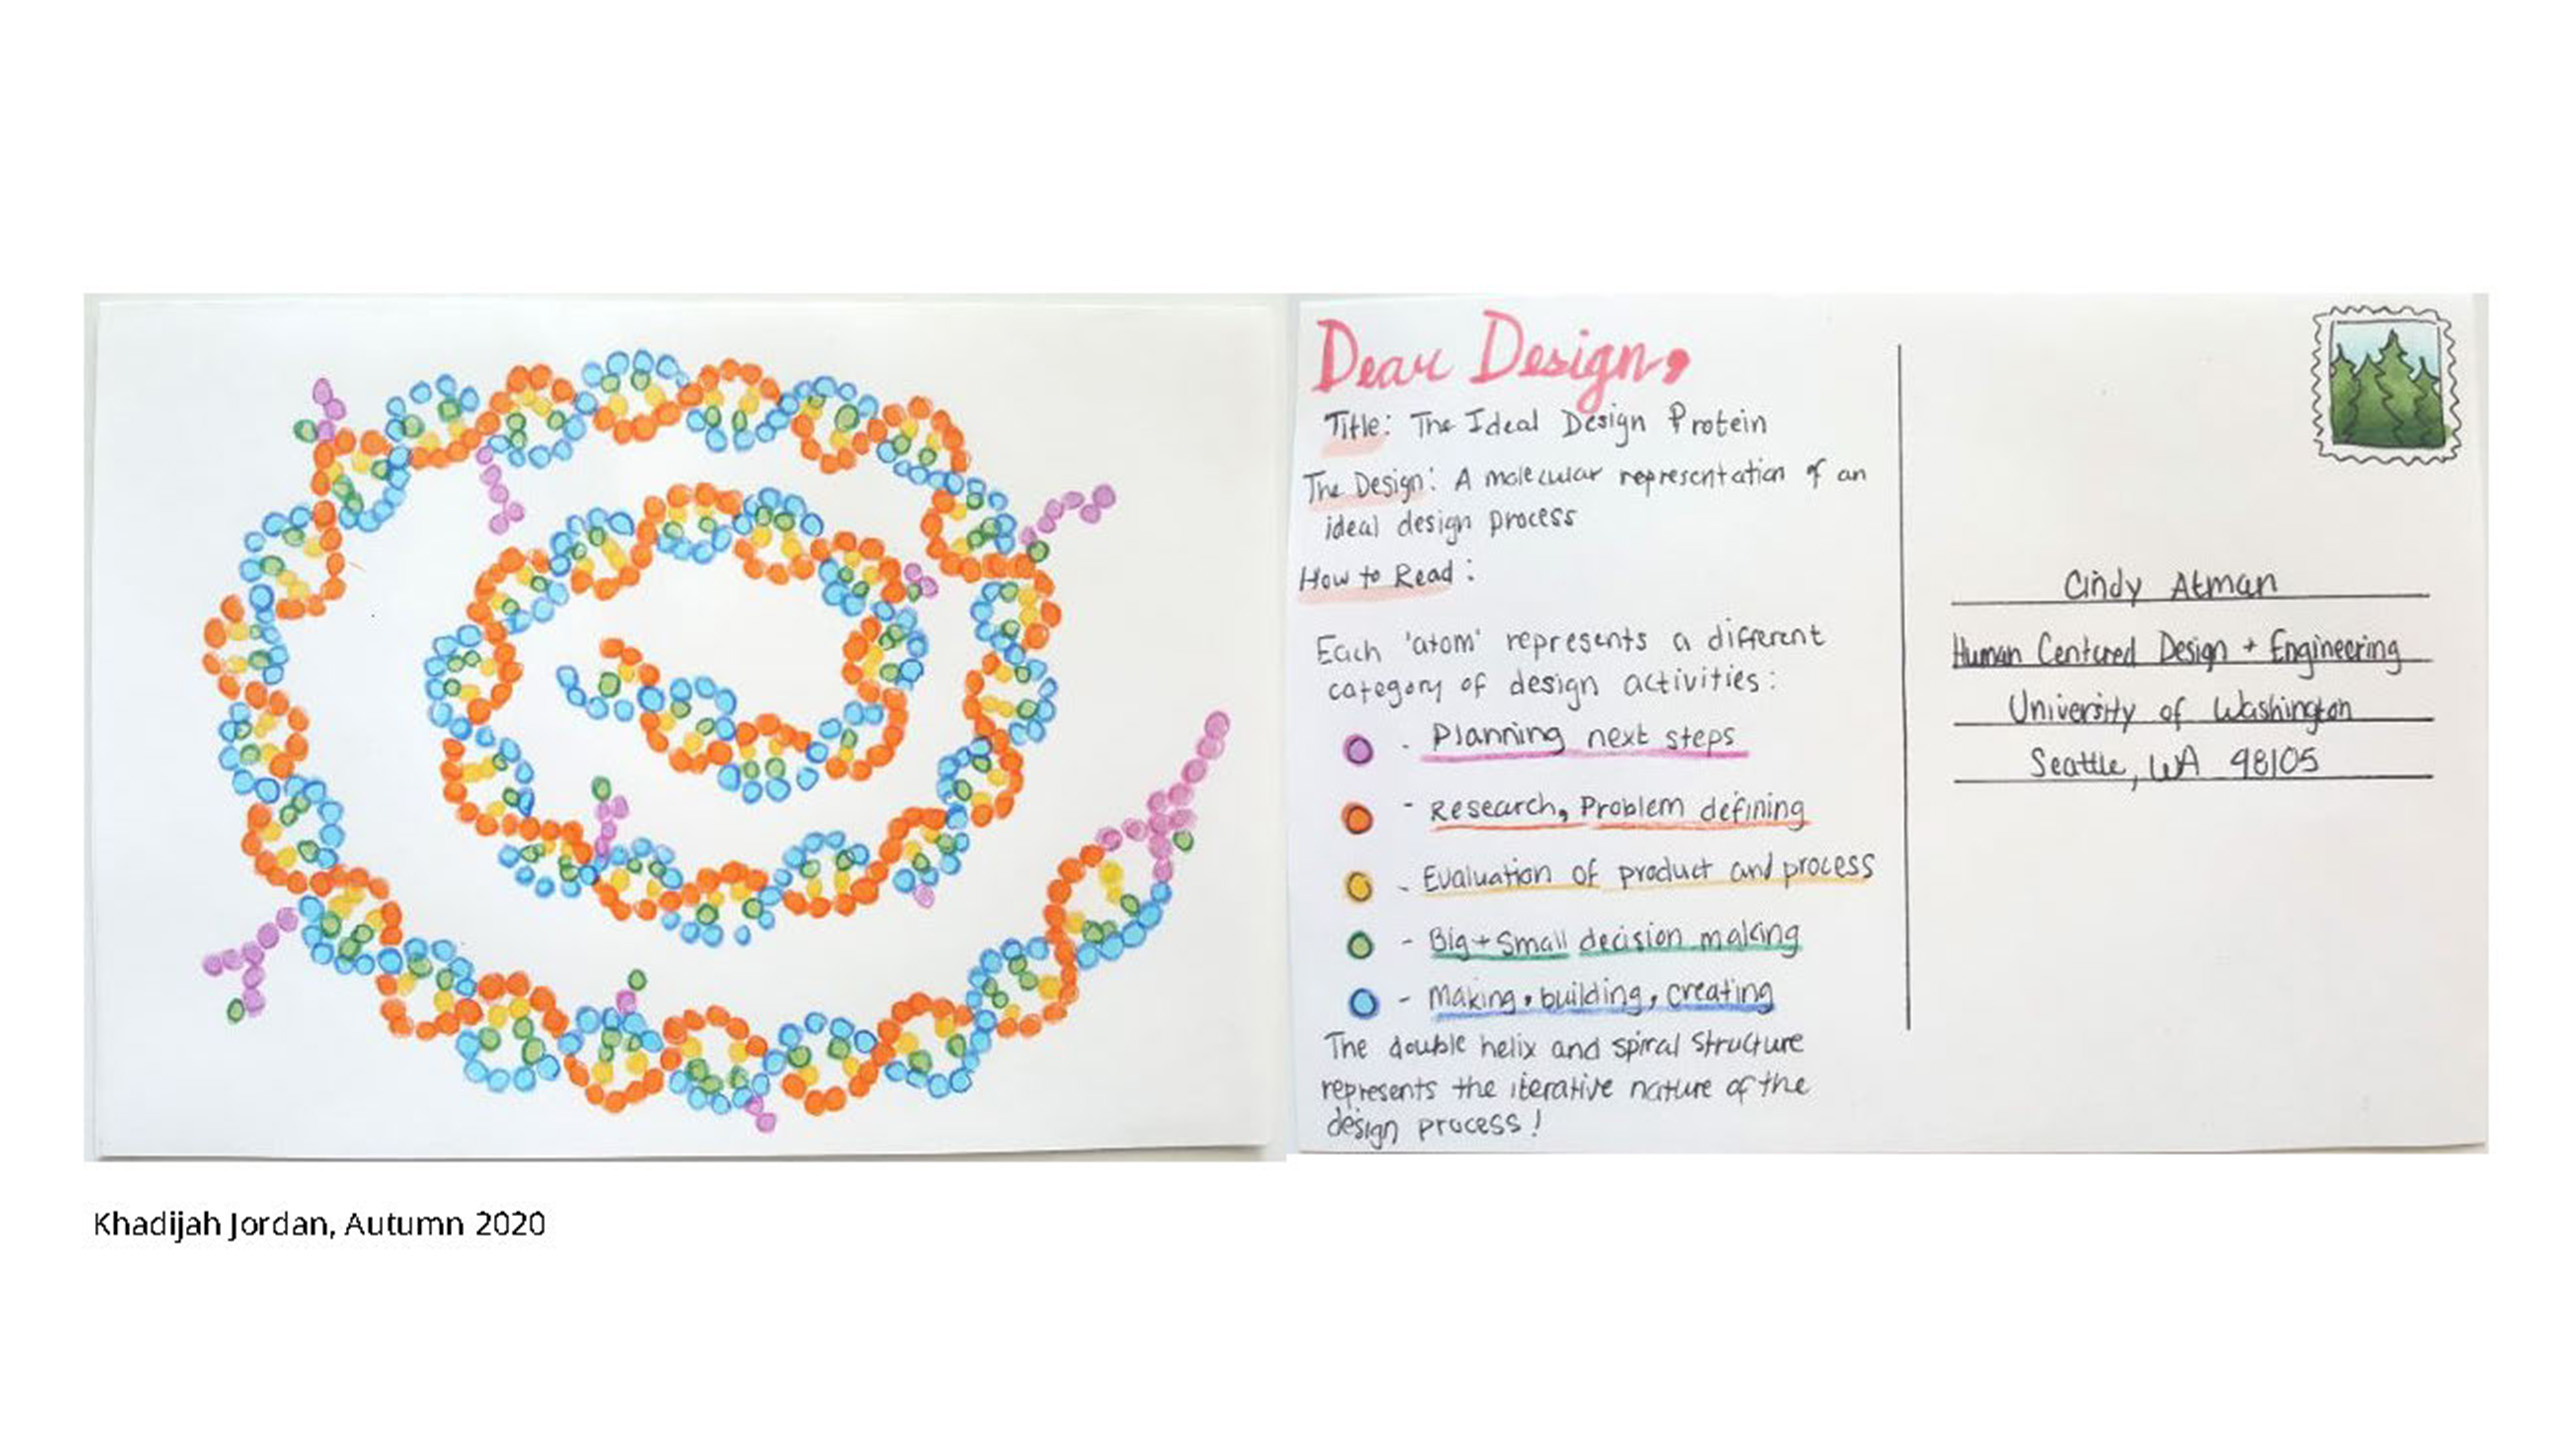 Dear Design,
Title: The Ideal Design Protein
The Design: A molecular representation of an
ideal design process
How to Read:
Each 'atom' represents a different
category of design activities:
- Planning next steps
- Research, Problem defining
- Evaluation of product and process
- Big + Small decision making
- Making, building, creating
The double helix and spiral structure
represents the iterative nature of the
design process!
Cindy Atman
Human Centered Design + Engineering
University of Washington
Seattle, WA 98105
Khadijah Jordan, Autumn 2020